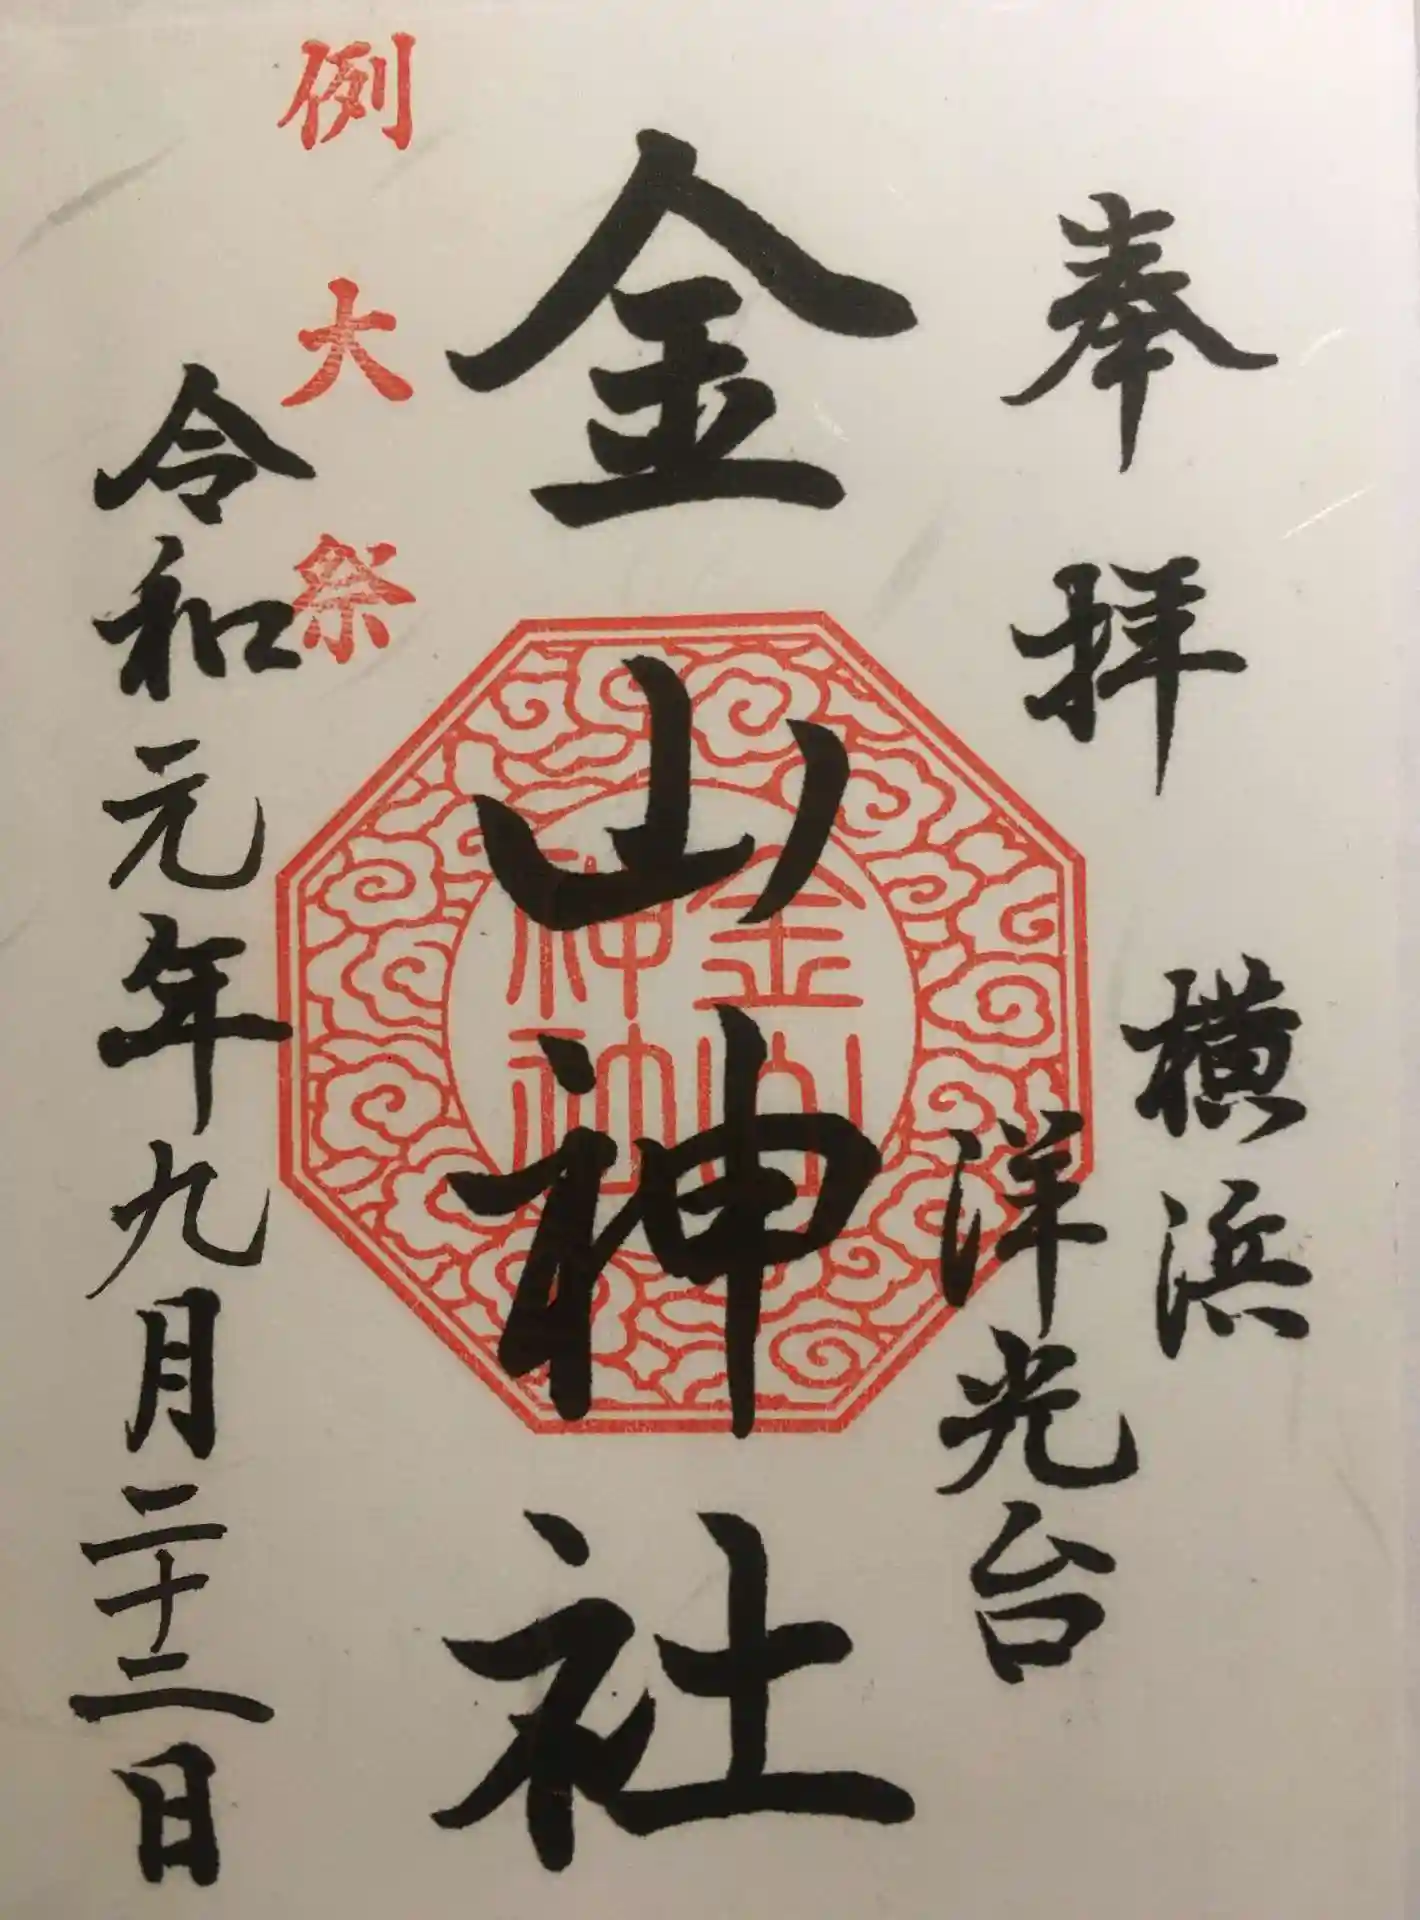 奉拝
横浜
洋光台
金山神社
例大祭
令和元年九月二十二日
金山
神